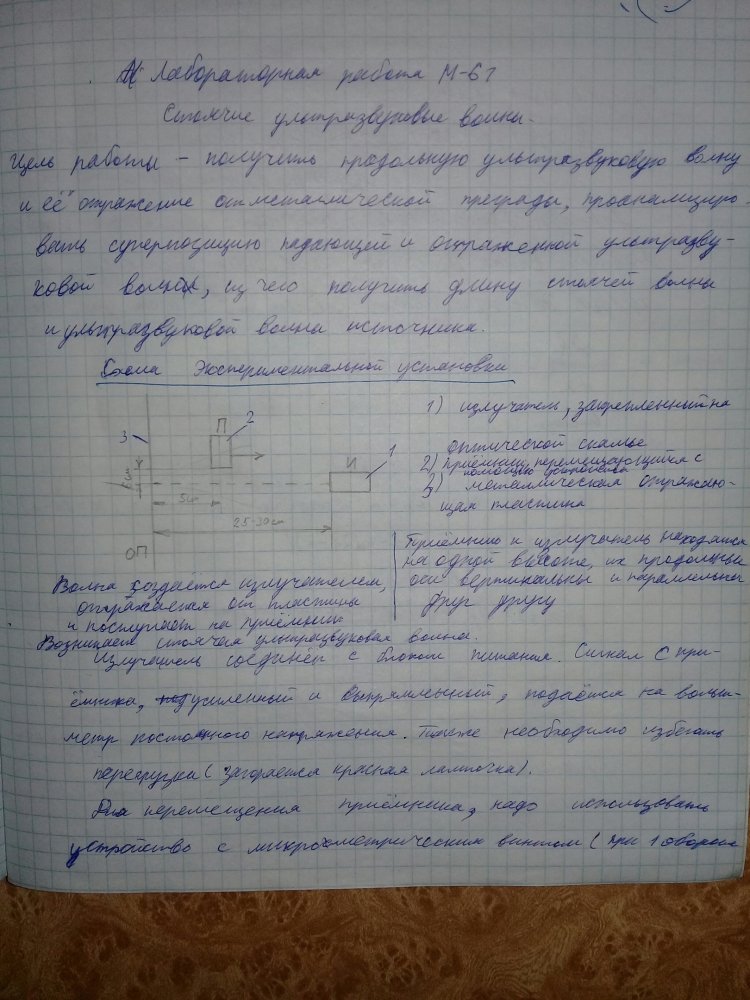 Лабораторная работа М-61
Стоячие ультразвуковые волны.
Цель работы – получить продольную ультразвуковую волну
и её отражение от металлической преграды, проанализиро-
вать суперпозицию падающей и отраженной ультразву-
ковой волны, из чего получить длину стоячей волны
и ультразвуковой волны источника.
Схема экспериментальной установки
1) излучатель, закрепленный на
оптической скамье
2) приёмник, перемещающийся с
помощью устройства
3) металлическая отражаю-
щая пластина
3
П
2
И
1
6 см
5 см
25-30 см
ОП
Приёмник и излучатель находятся
на одной высоте, их продольные
оси вертикальны и параллельны
друг другу
Волна создаётся излучателем,
отражается от пластины
и поступает на приёмник
Возникает стоячая ультразвуковая волна.
Излучатель соединён с блоком питания. Сигнал с при-
ёмника, усиленный и выпрямленный, подаётся на вольт-
метр постоянного напряжения. Также необходимо избегать
перегрузки (загорается красная лампочка).
Для перемещения приёмника, надо использовать
устройство с микрометрическим винтом (при 1 обороте